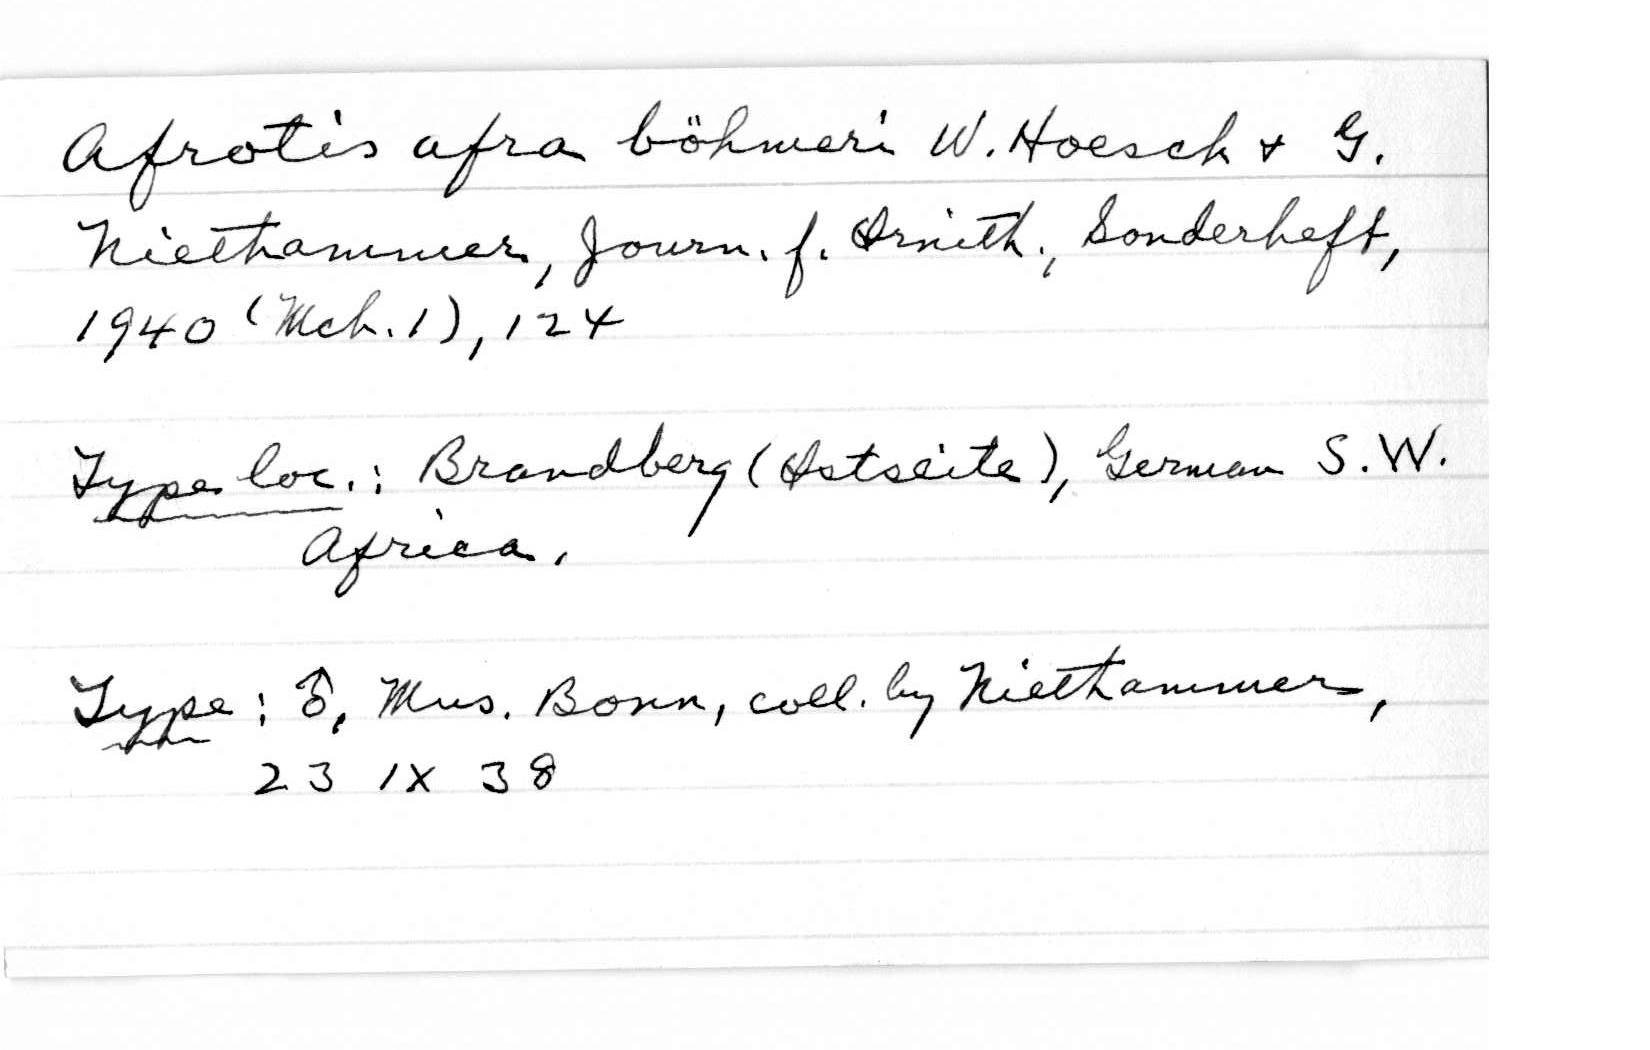 Afrotis afra böhmeri W. Hoesch & G.
Niethammer, Journ. f. Ornith., Sonderheft,
1940 (Mch. 1), 124
Type loc.: Brandberg (Ostseite), German S.W.
Africa.
Type: ♂, Mus. Bonn, coll. by Niethammer,
23 IX 38